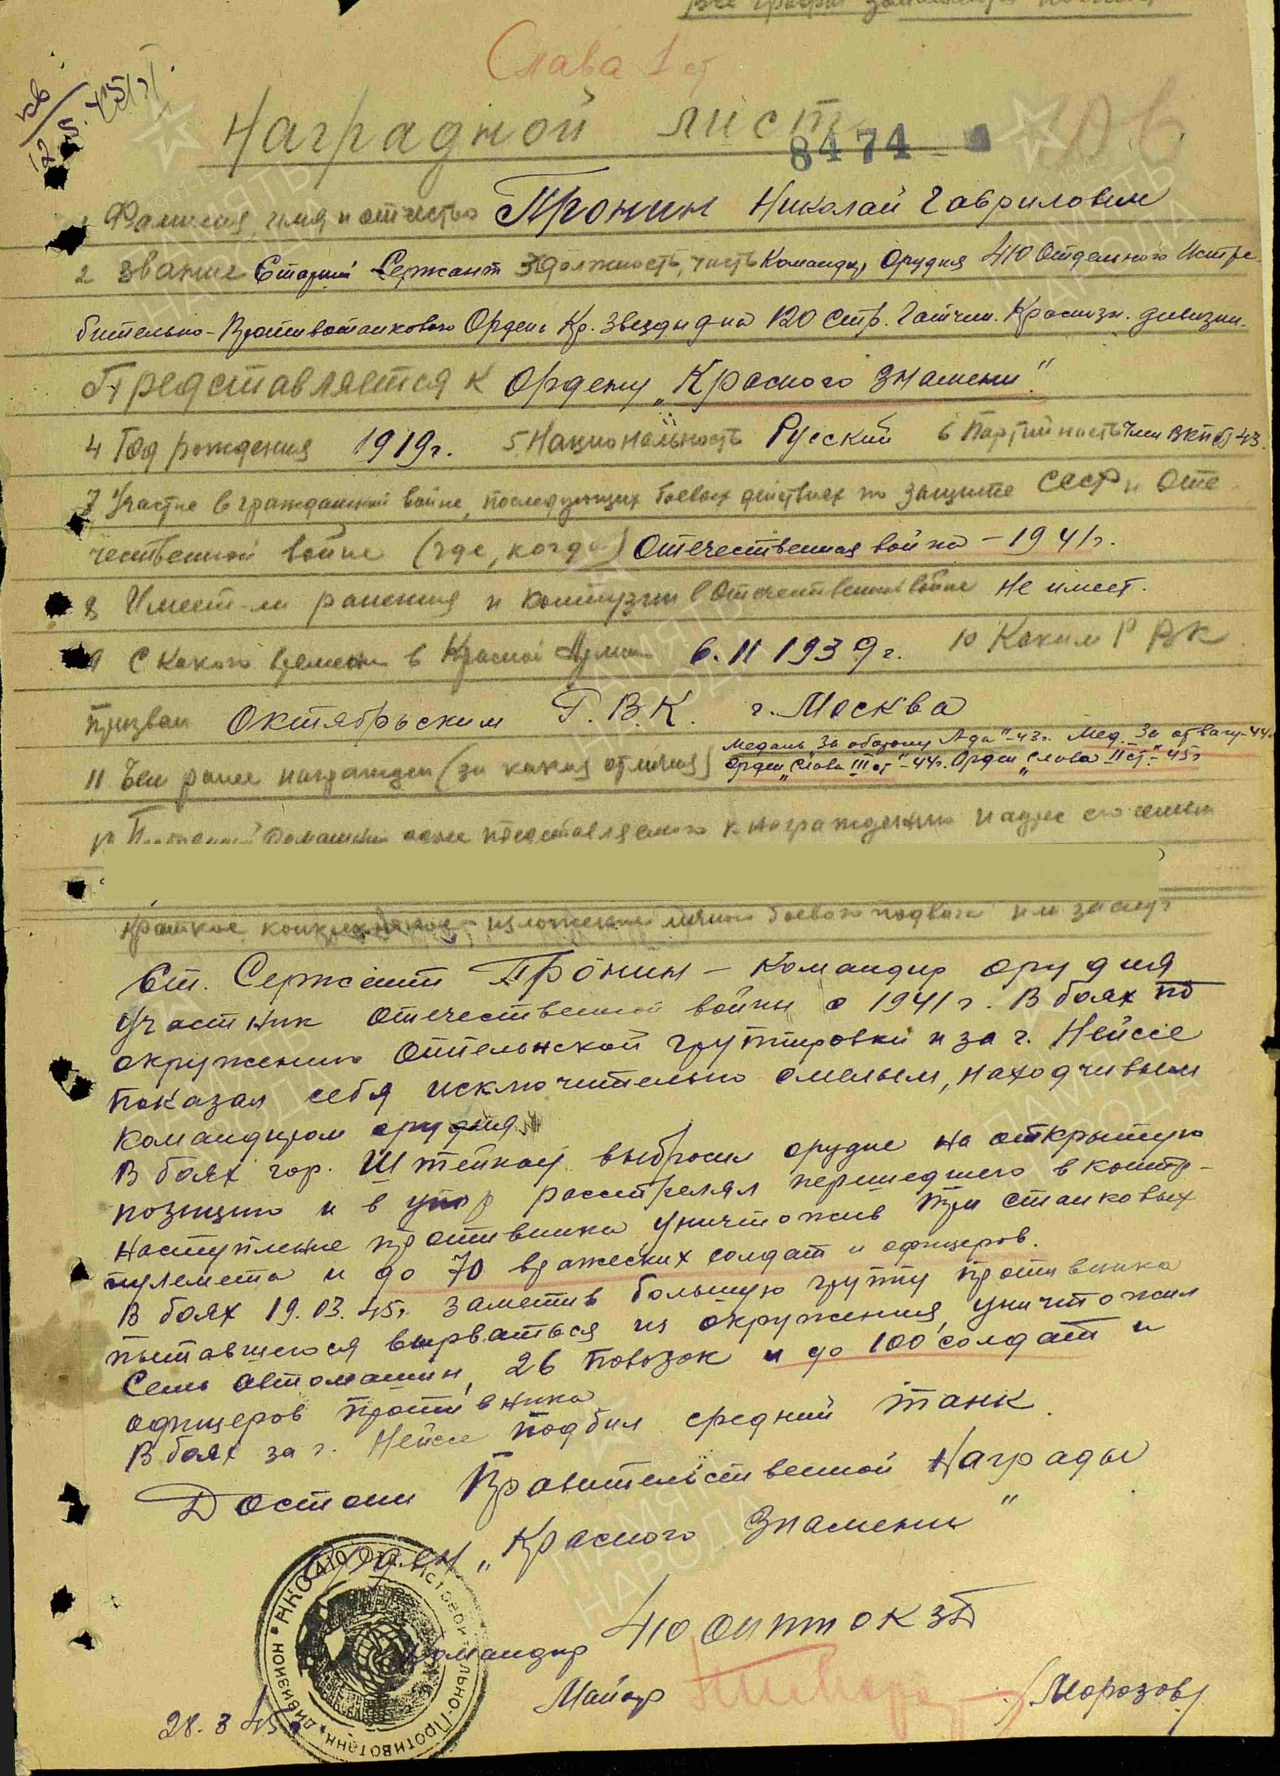 Слава 1 ст
Наградной лист
8474
1 Фамилия, имя и отчество Пронин Николай Гаврилович
2 Звание Старший Сержант 3 Должность, часть Командир Орудия 410 Отдельного Истре-
бительно-Противотанкового Ордена Кр. Звезды д-на 120 Стр. Гатчин. Краснозн. дивизии.
Представляется к Ордену „Красного Знамени".
4 Год рождения 1919г. 5 Национальность Русский 6 Партийность Член ВКП(б) 43.
7 Участие в гражданской войне, последующих боевых действиях по защите СССР и Оте-
чественной войне (где, когда) Отечественная война – 1941г.
8 Имеет-ли ранения и контузии в Отечественной войне Не имеет.
9 С какого времени в Красной Армии 6.11 1939г. 10 Каким РВК
призван Октябрьским Р.В.К. г. Москва
11 Чем ранее награжден (за какие отличия) Медаль „За оборону Л-да"-43г. Мед. За отвагу-44г.
Орден „Слава III ст"-44г. Орден „Слава II ст"-45г
12 Постоянный домашний адрес представляемого к награждению и адрес его семьи
Краткое конкретное изложение личного боевого подвига или заслуг
Ст. Сержант Пронин – командир орудия
участник отечественной войны с 1941г. В боях по
окружению Оппельнской группировки и за г. Нейссе
показал себя исключительно смелым, находчивым
командиром орудия.
В боях гор. Штейнау выбросил орудие на открытую
позицию и в упор расстрелял перешедшего в контр-
наступление противника уничтожив три станковых
пулемета и до 70 вражеских солдат и офицеров.
В боях 19.03.45г заметив большую группу противника
пытавшегося вырваться из окружения, уничтожил
семь автомашин, 26 повозок и до 100 солдат и
офицеров противника
В боях за г. Нейссе подбил средний танк.
Достоин Правительственной Награды
Орден „Красного Знамени"
Командир 410 ОИПТОКЗД
Майор /Морозов/
28.3.45г
НКО 410 Отд. Истребительно-Противотанк. дивизион